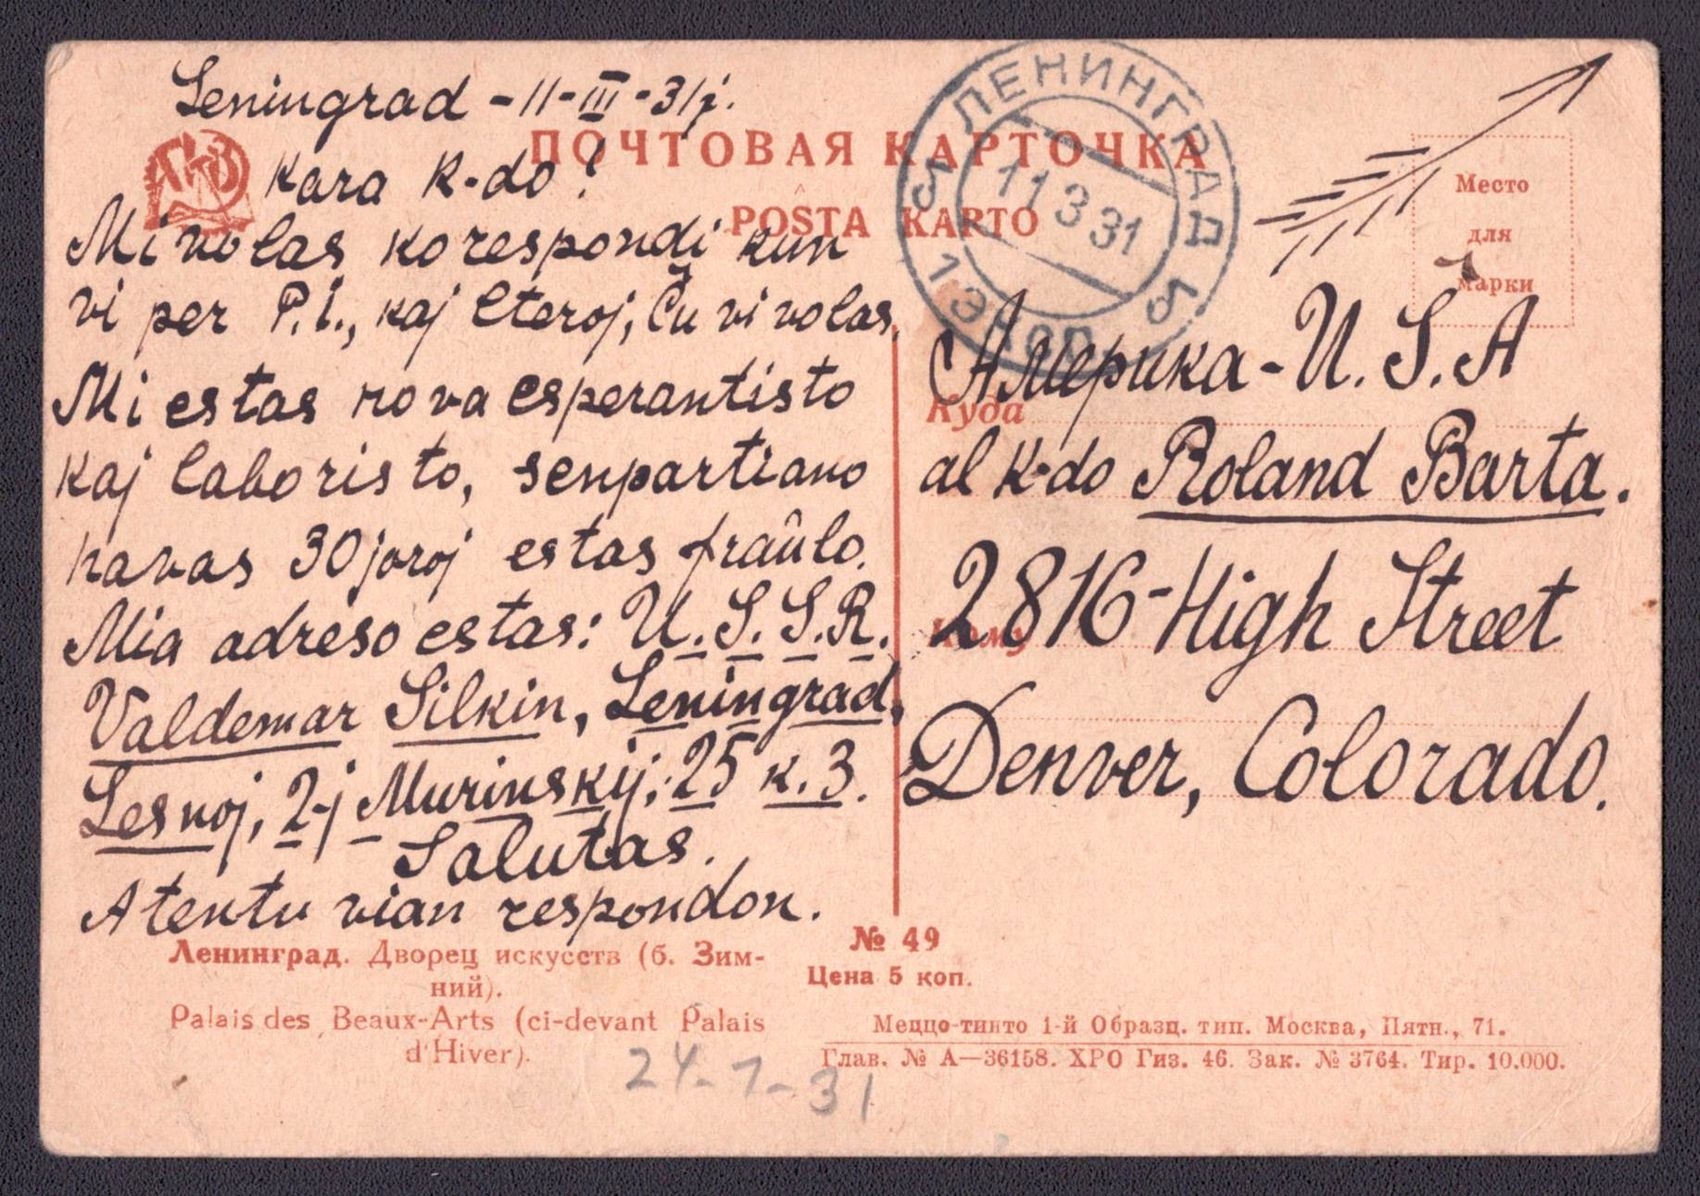 Leningrad - 11-III-31j.
ПОЧТОВАЯ КАРТОЧКА
POŜTA KARTO
Kara K-do!
Mi volas korespondi kun
vi per P.I., kaj leteroj, Ĉu vi volas.
Mi estas nova esperantisto
kaj laboristo, senpartiano
havas 30 jaroj estas fraŭlo.
Mia adreso estas: U.S.S.R.
Valdemar Silkin, Leningrad,
Lesnoj, 2-j Murinskij; 25 k. 3.
Salutas.
Atentu vian respondon.
Ленинград. Дворец искусств (б. Зим-
ний).
Palais des Beaux-Arts (ci-devant Palais
d'Hiver).
24-7-31
ЛЕНИНГРАД 5
11 3 31
1 ЭКСП.
Место
для
марки
Куда
Америка - U.S.A
al k-do Roland Barta.
Кому
2816 - High Street
Denver, Colorado.
№ 49
Цена 5 коп.
Меццо-тинто 1-й Образц. тип. Москва, Пятн., 71.
Глав. № А—36158. ХРО Гиз. 46. Зак. № 3764. Тир. 10.000.